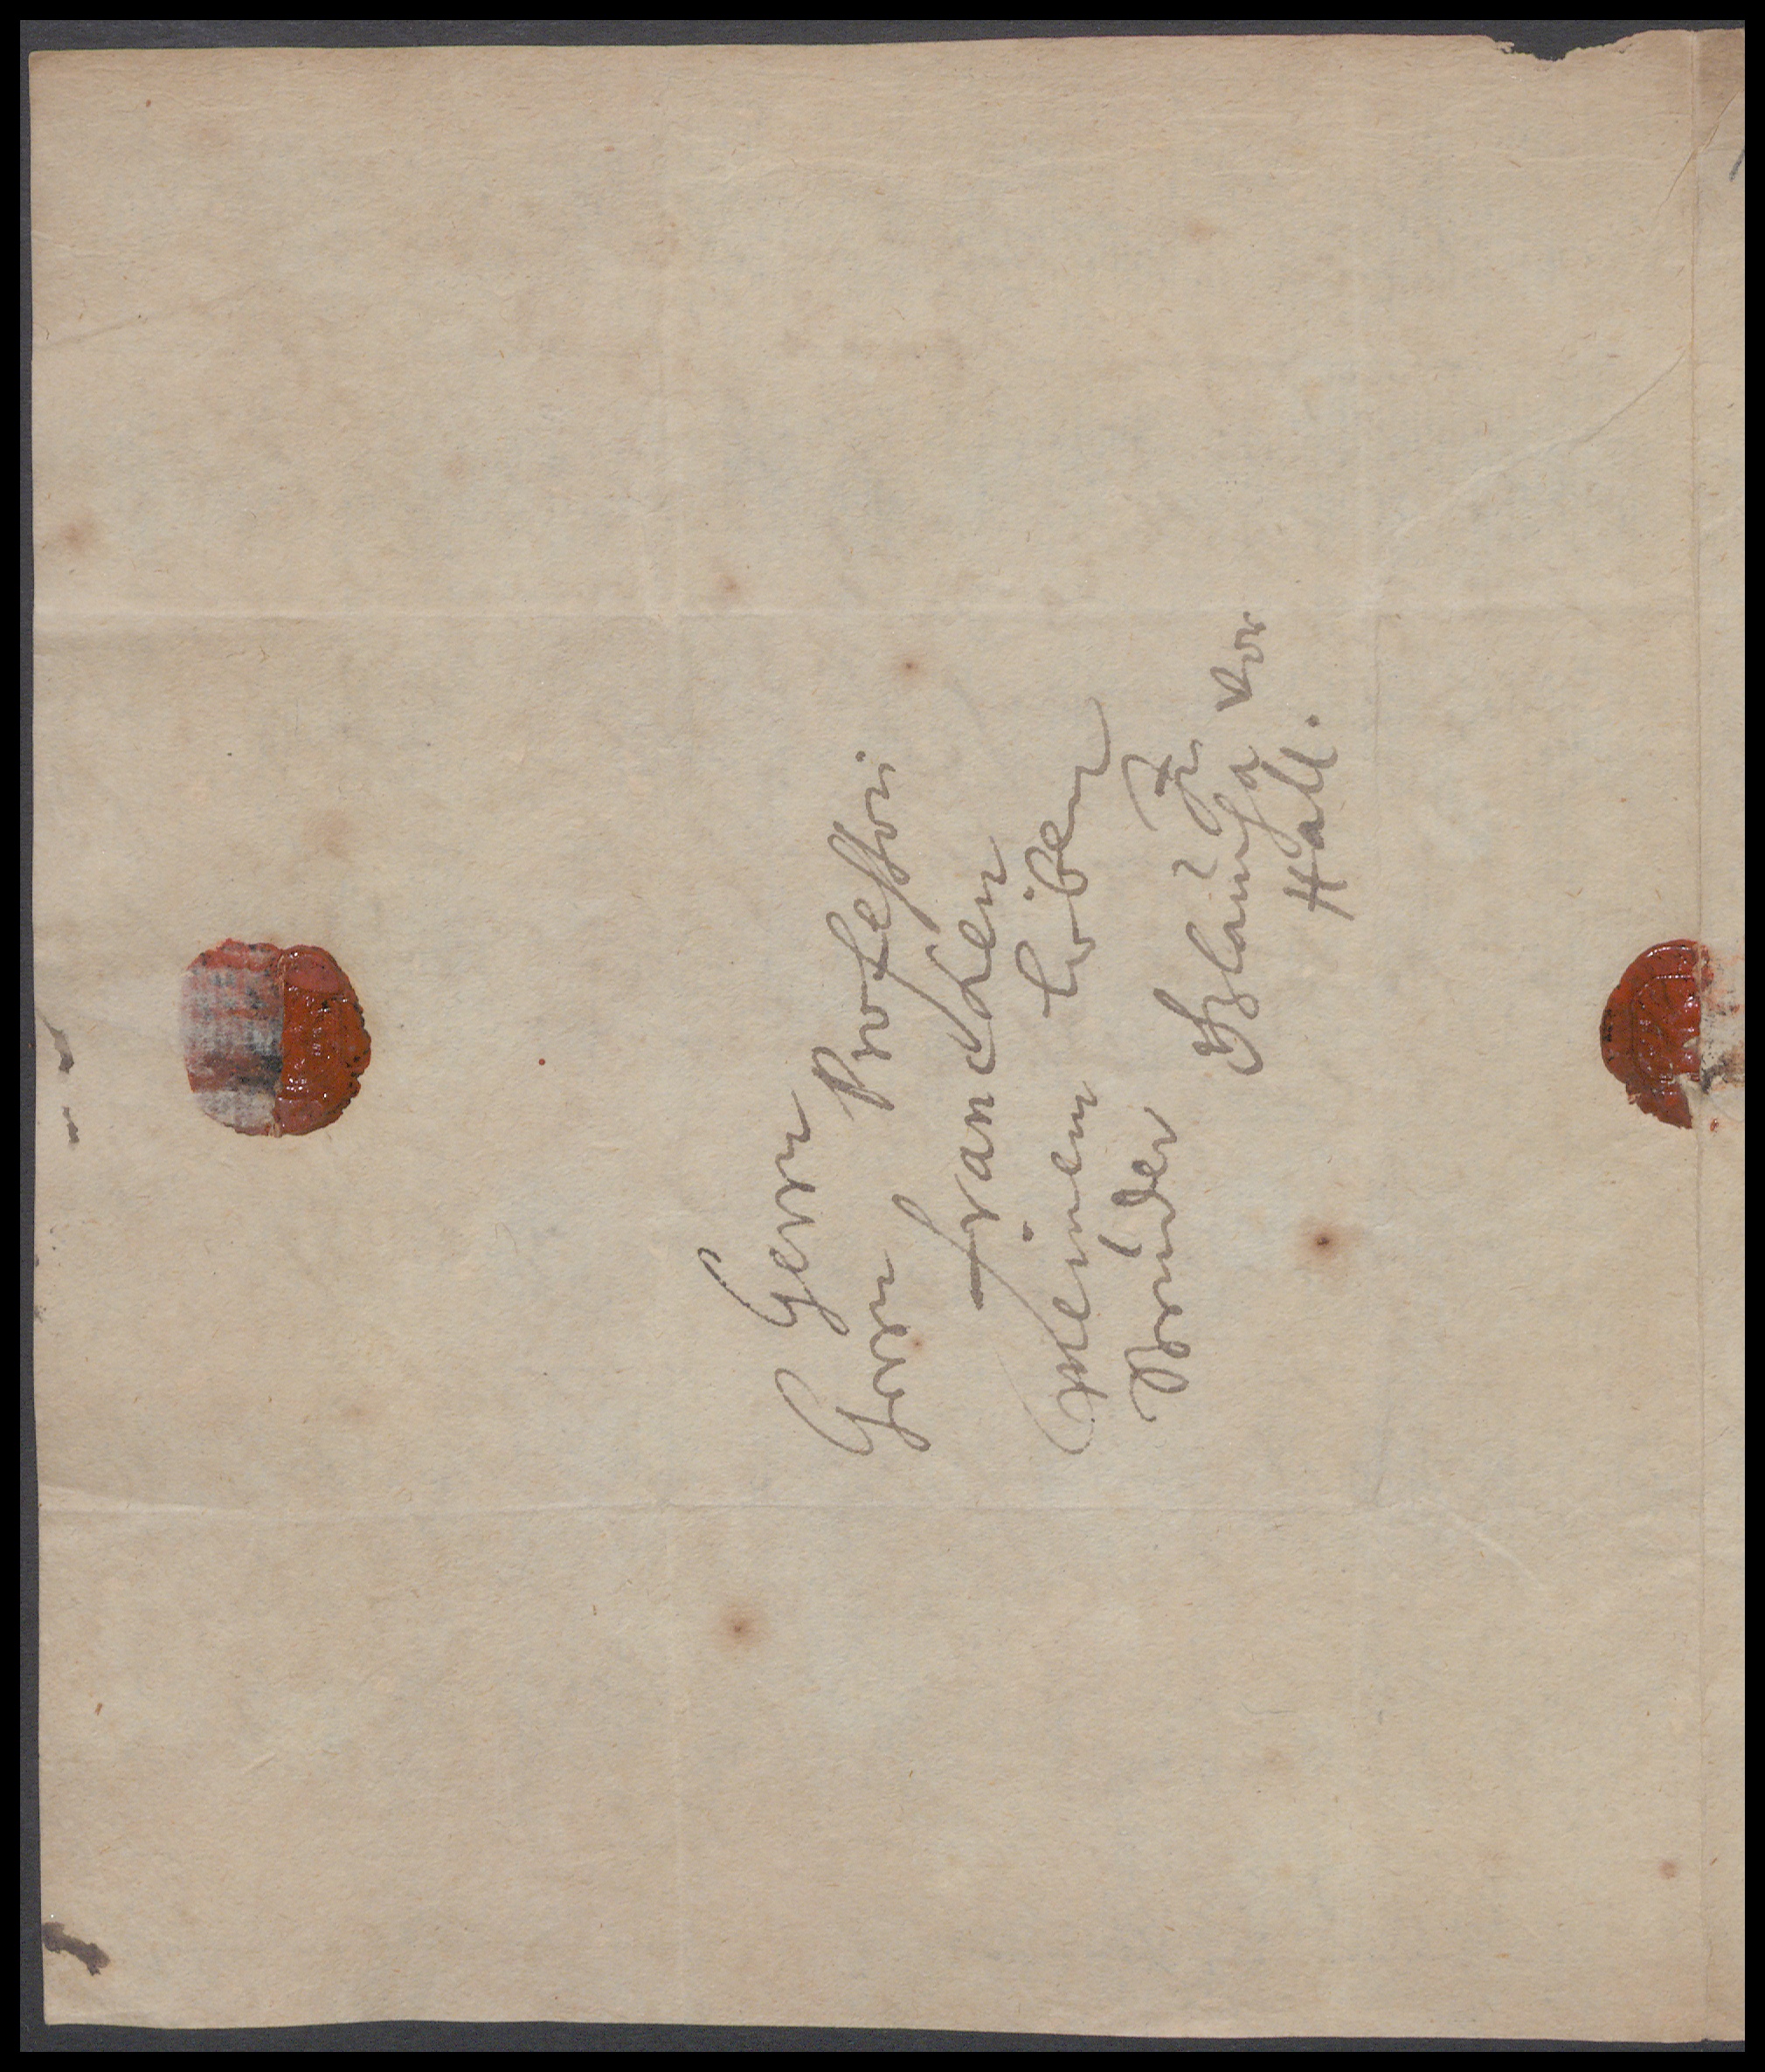 Herrn
Herrn Professori
Francken
Meinem lieben
Bruder
zu
Glaucha vor
Hall.